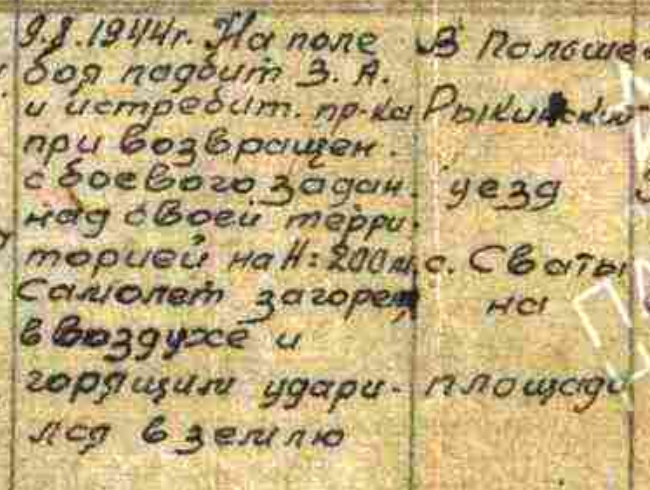 9.8.1944г. На поле
боя падбит З. А.
и истребит. пр-ка
при возвращен.
с боевого задан.
над своей терри-
торией на Н=200м,
самолет загорел
в воздухе и
горящим удари-
лся в землю
В Польше
уезд
с. Сваты
на
площади